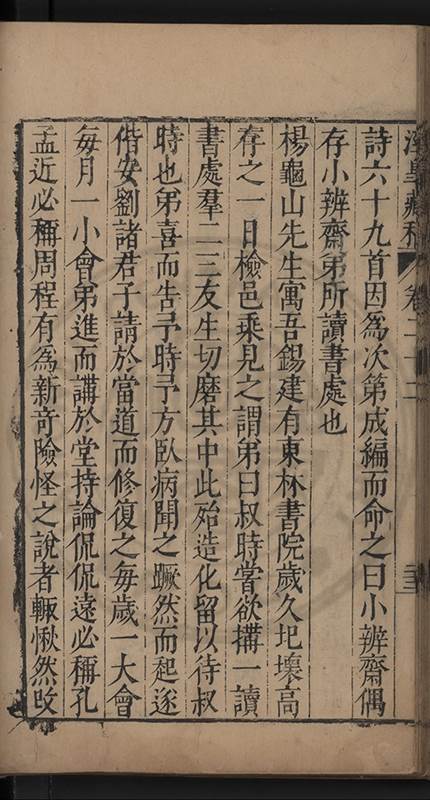 涇皋藏稿 卷二十二
詩六十九首因爲次第成編而命之曰小辨齋偶
存小辨齋弟所讀書處也
楊龜山先生寓吾錫建有東林書院歲久圮壞高
存之一日檢邑乘見之謂弟曰叔時嘗欲搆一讀
書處羣二三友生切磨其中此殆造化留以待叔
時也弟喜而告予時予方臥病聞之蹶然而起遂
偕安劉諸君子請於當道而修復之每歲一大會
每月一小會弟進而講於堂持論侃侃遠必稱孔
孟近必稱周程有爲新奇險怪之說者輒愀然改